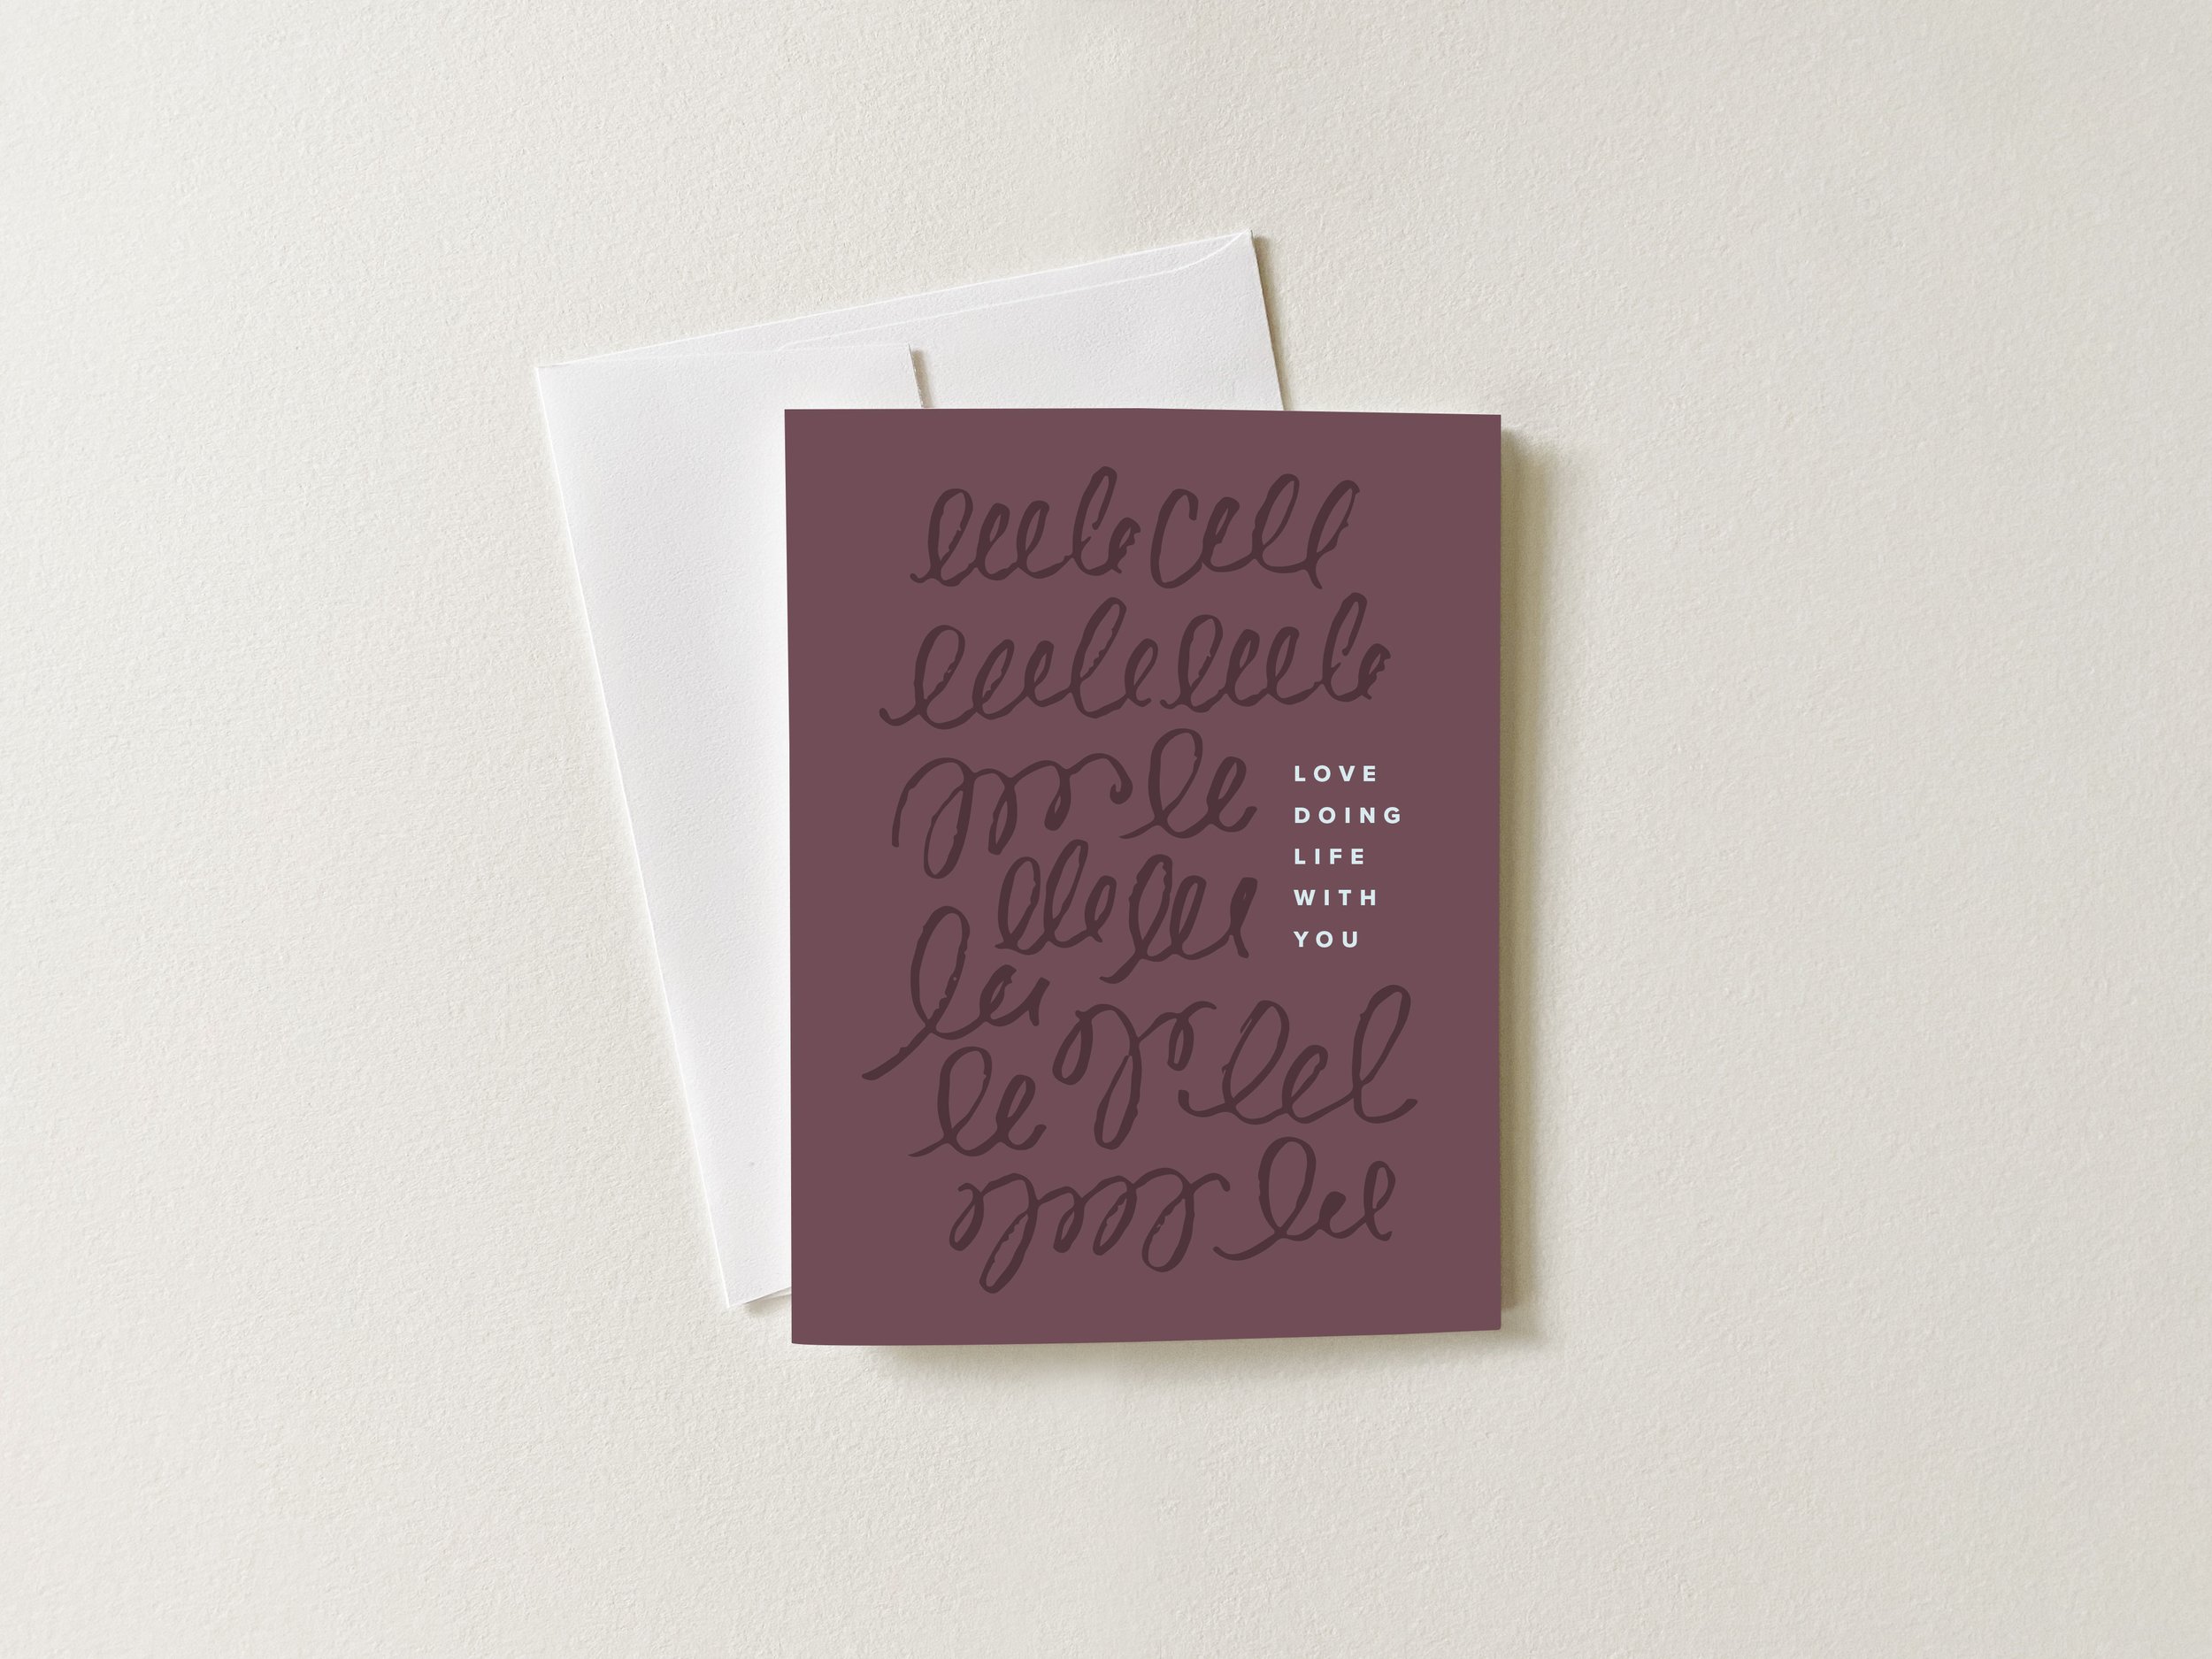 LOVE
DOING
LIFE
WITH
YOU